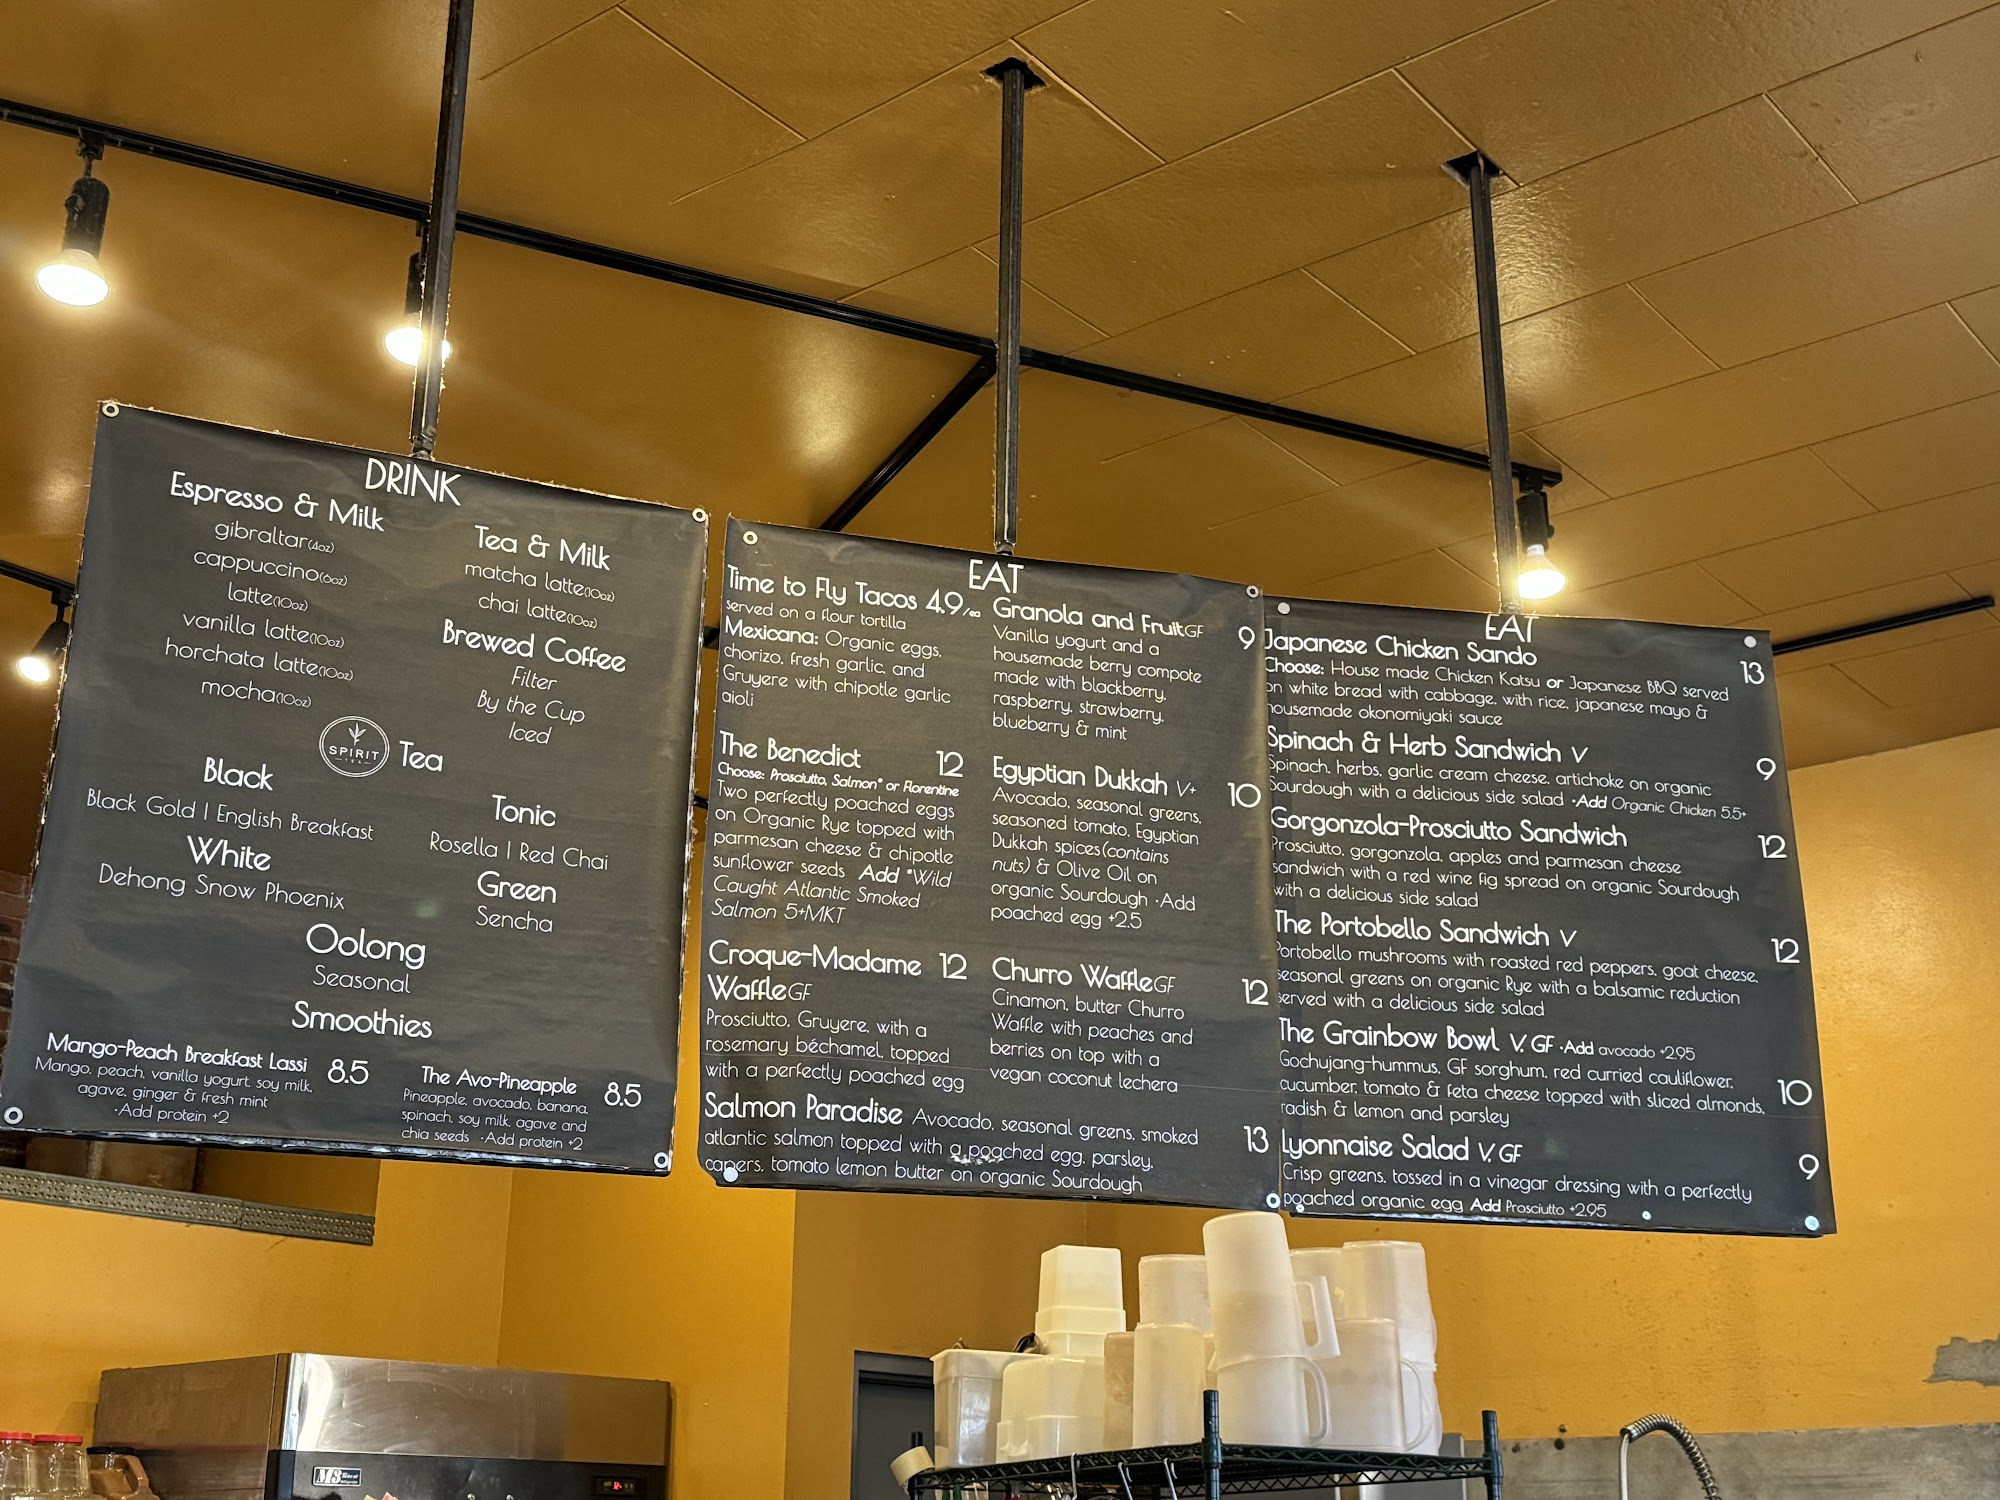 DRINK
Espresso & Milk
gibraltar(4oz)
cappuccino(6oz)
latte(10oz)
vanilla latte(10oz)
horchata latte(10oz)
mocha(10oz)
Tea & Milk
matcha latte(10oz)
chai latte(10oz)
Brewed Coffee
Filter
By the Cup
Iced
SPIRIT
TEA
Tea
Black
Black Gold | English Breakfast
White
Dehong Snow Phoenix
Tonic
Rosella | Red Chai
Green
Sencha
Oolong
Seasonal
Smoothies
Mango-Peach Breakfast Lassi 8.5
Mango, peach, vanilla yogurt, soy milk,
agave, ginger & fresh mint
•Add protein +2
The Avo-Pineapple 8.5
Pineapple, avocado, banana,
spinach, soy milk, agave and
chia seeds •Add protein +2
EAT
Time to Fly Tacos 4.9/ea
served on a flour tortilla
Mexicana: Organic eggs,
chorizo, fresh garlic, and
Gruyere with chipotle garlic
aioli
The Benedict 12
Choose: Prosciutto, Salmon* or Florentine
Two perfectly poached eggs
on Organic Rye topped with
parmesan cheese & chipotle
sunflower seeds Add *Wild
Caught Atlantic Smoked
Salmon 5+MKT
Croque-Madame 12
Waffle GF
Prosciutto, Gruyere, with a
rosemary béchamel, topped
with a perfectly poached egg
Granola and Fruit GF 9
Vanilla yogurt and a
housemade berry compote
made with blackberry,
raspberry, strawberry,
blueberry & mint
Egyptian Dukkah V+ 10
Avocado, seasonal greens,
seasoned tomato, Egyptian
Dukkah spices(contains
nuts) & Olive Oil on
organic Sourdough •Add
poached egg +2.5
Churro Waffle GF 12
Cinamon, butter Churro
Waffle with peaches and
berries on top with a
vegan coconut lechera
Salmon Paradise Avocado, seasonal greens, smoked 13
atlantic salmon topped with a poached egg, parsley,
capers, tomato lemon butter on organic Sourdough
EAT
Japanese Chicken Sando 13
Choose: House made Chicken Katsu or Japanese BBQ served
on white bread with cabbage, with rice, japanese mayo &
housemade okonomiyaki sauce
Spinach & Herb Sandwich V 9
Spinach, herbs, garlic cream cheese, artichoke on organic
Sourdough with a delicious side salad •Add Organic Chicken 5.5+
Gorgonzola-Prosciutto Sandwich 12
Prosciutto, gorgonzola, apples and parmesan cheese
sandwich with a red wine fig spread on organic Sourdough
with a delicious side salad
The Portobello Sandwich V 12
Portobello mushrooms with roasted red peppers, goat cheese,
seasonal greens on organic Rye with a balsamic reduction
served with a delicious side salad
The Grainbow Bowl V, GF •Add avocado +2.95
Gochujang-hummus, GF sorghum, red curried cauliflower, 10
cucumber, tomato & feta cheese topped with sliced almonds,
radish & lemon and parsley
Lyonnaise Salad V, GF 9
Crisp greens, tossed in a vinegar dressing with a perfectly
poached organic egg Add Prosciutto +2.95
M3